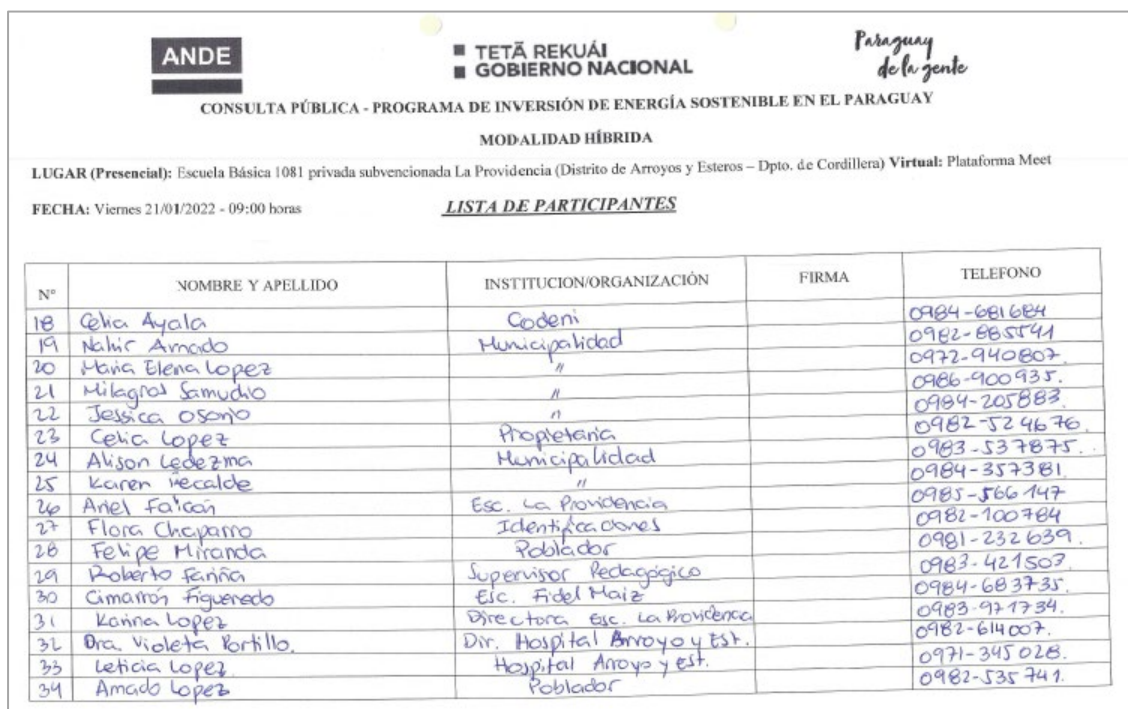 ANDE
TETÃ REKUÁI
GOBIERNO NACIONAL
Paraguay
de la gente
CONSULTA PÚBLICA - PROGRAMA DE INVERSIÓN DE ENERGÍA SOSTENIBLE EN EL PARAGUAY
MODALIDAD HÍBRIDA
LUGAR (Presencial): Escuela Básica 1081 privada subvencionada La Providencia (Distrito de Arroyos y Esteros – Dpto. de Cordillera) Virtual: Plataforma Meet
FECHA: Viernes 21/01/2022 - 09:00 horas LISTA DE PARTICIPANTES
N° NOMBRE Y APELLIDO INSTITUCION/ORGANIZACIÓN FIRMA TELEFONO
18 Celia Ayala Codeni 0984-681684
19 Nahir Amado Municipalidad 0982-885541
20 Maria Elena Lopez " 0972-940807.
21 Milagros Samudio " 0986-900935.
22 Jessica Osorio " 0984-205883.
23 Celia Lopez Propietaria 0982-524676.
24 Alison Ledezma Municipalidad 0983-537875.
25 Karen Recalde " 0984-357381.
26 Ariel Falcón Esc. La Providencia 0985-566147
27 Flora Chaparro Identificaciones 0982-100784
28 Felipe Miranda Poblador 0981-232639.
29 Roberto Fariña Supervisor Pedagógico 0983-421503.
30 Cimarrón Figueredo Esc. Fidel Maiz 0984-683735.
31 Karina Lopez Directora Esc. La Providencia 0983-971734.
32 Dra. Violeta Portillo. Dir. Hospital Arroyo y Est. 0982-614007.
33 Leticia Lopez Hospital Arroyo y est. 0971-345028.
34 Amado Lopez Poblador 0982-535741.